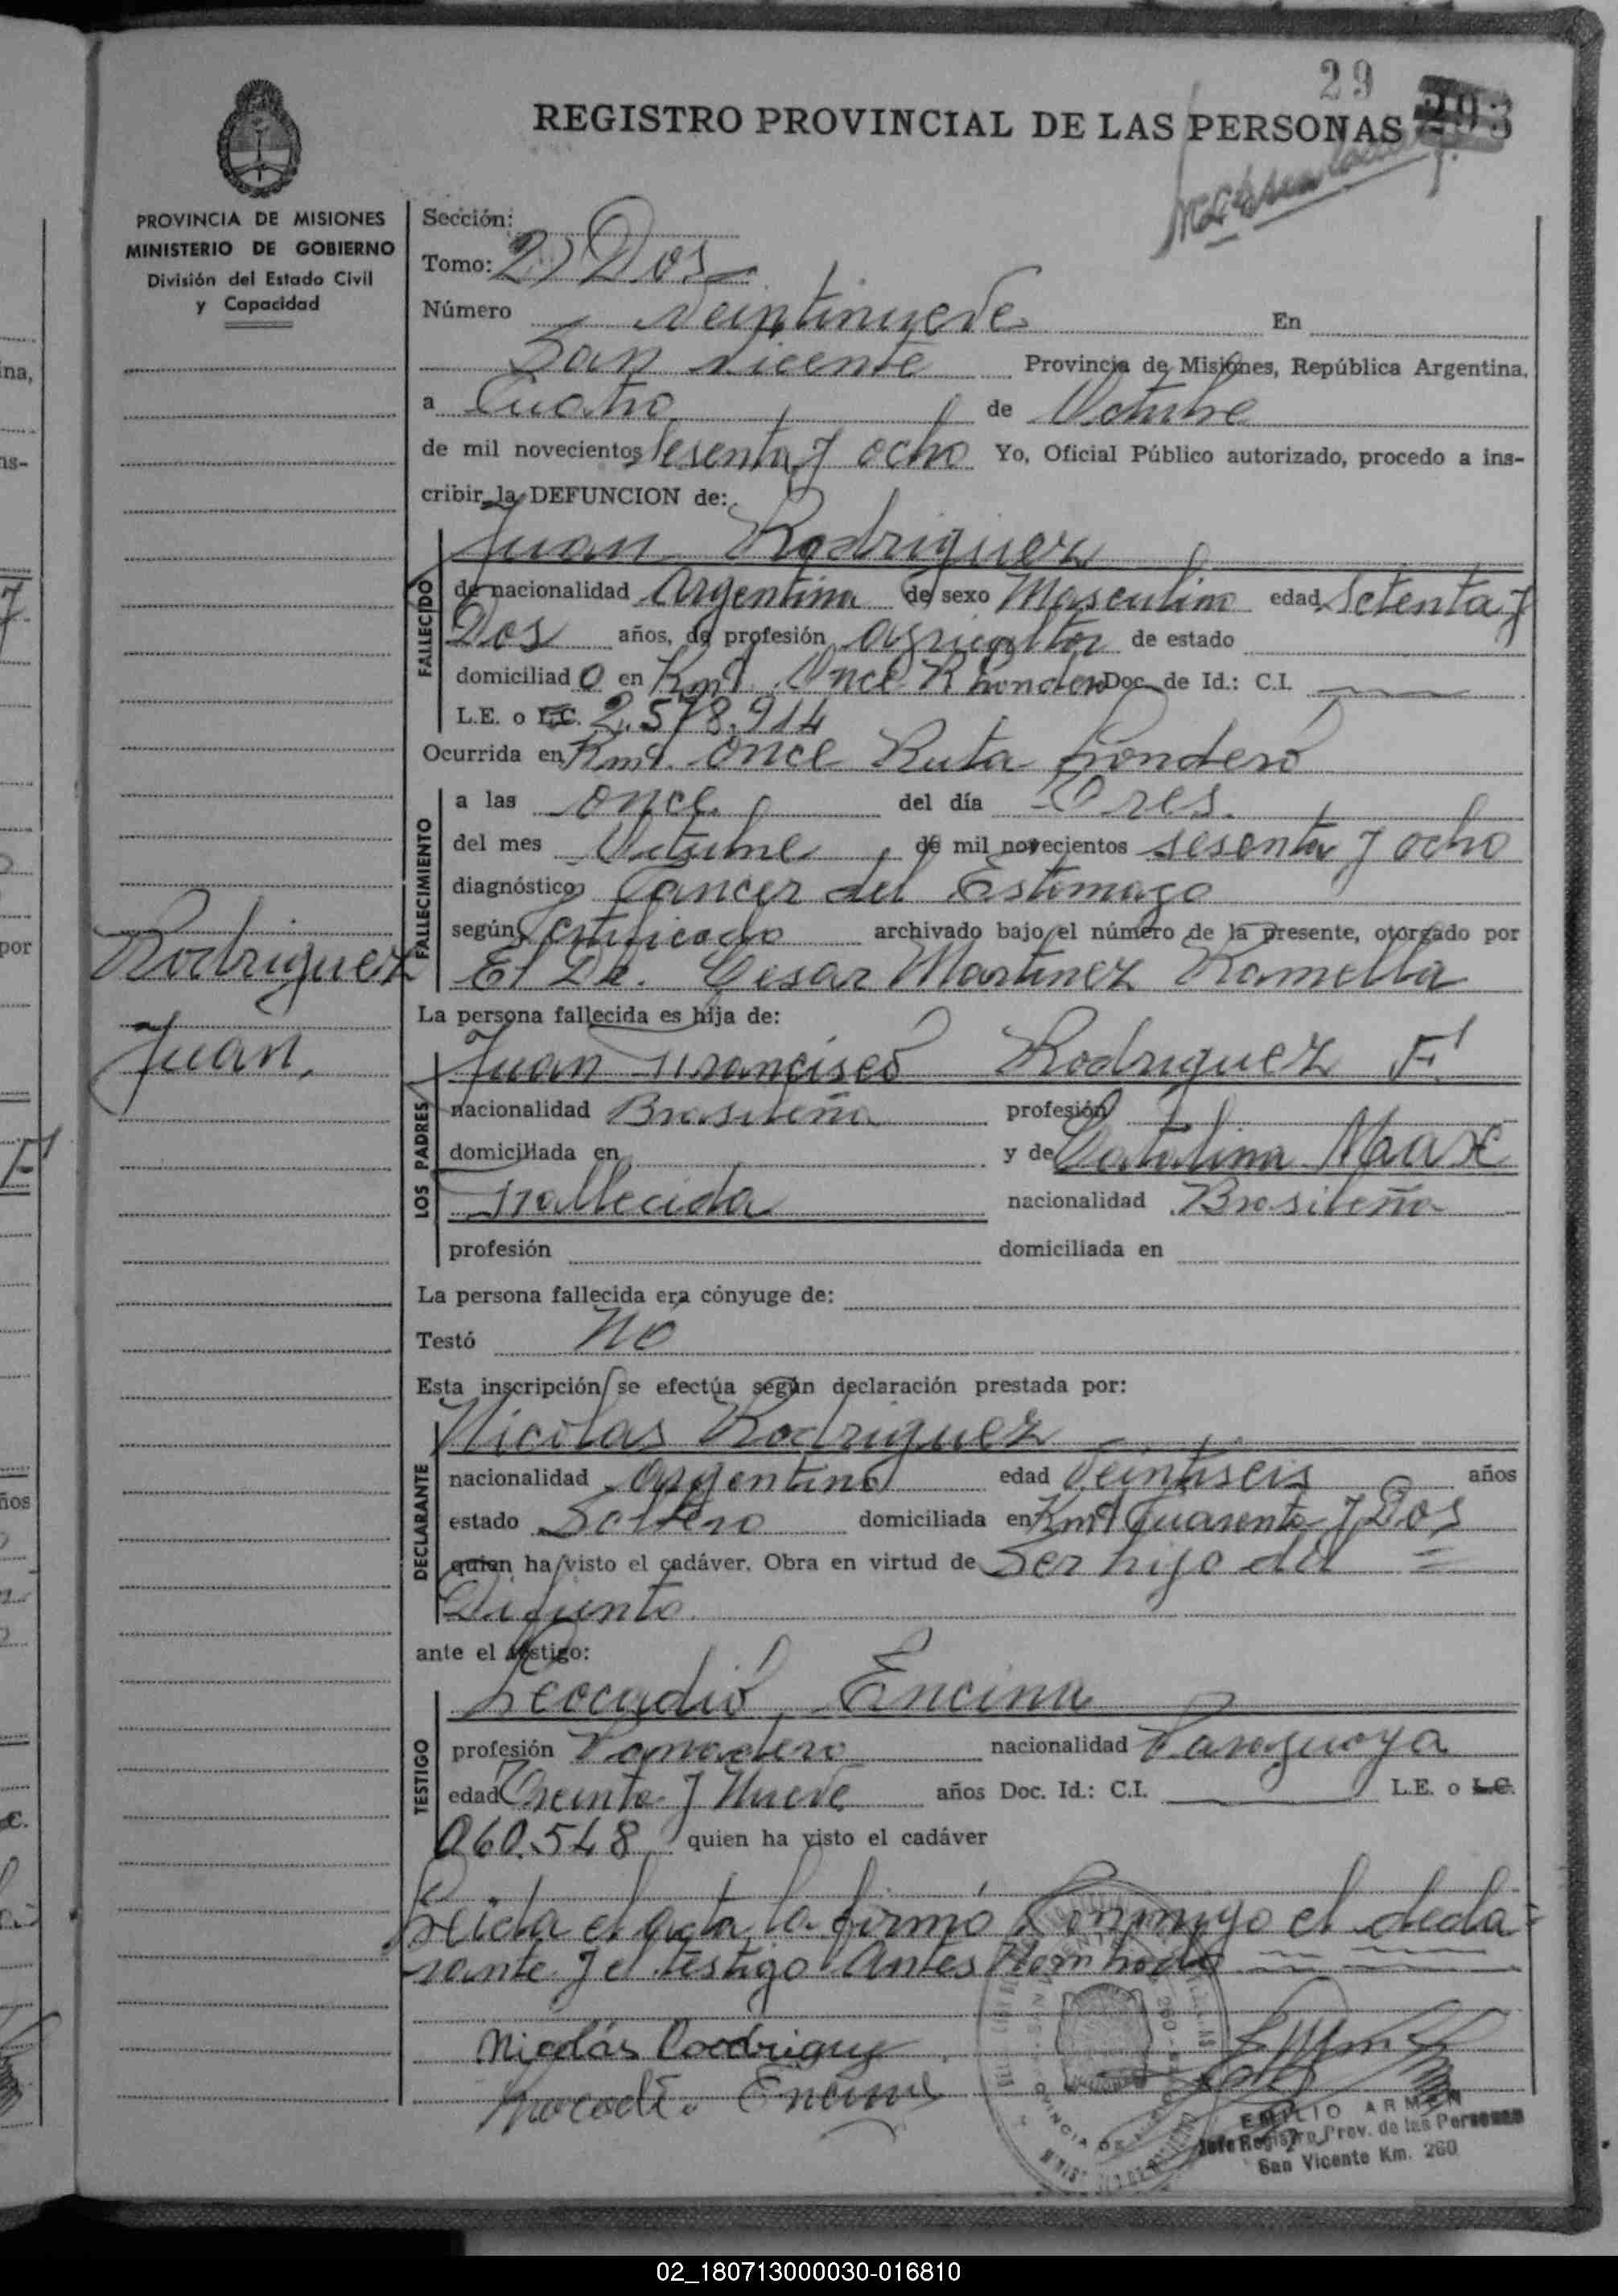 29
REGISTRO PROVINCIAL DE LAS PERSONAS
PROVINCIA DE MISIONES
MINISTERIO DE GOBIERNO
División del Estado Civil
y Capacidad
Sección:
Tomo: 2) Dos
Número Veintinueve En
San Vicente Provincia de Misiones, República Argentina,
a Cuatro de Octubre
de mil novecientos Sesenta y ocho Yo, Oficial Público autorizado, procedo a ins-
cribir la DEFUNCION de:
Juan Rodriguez
FALLECIDO
de nacionalidad Argentina de sexo Masculino edad Setenta y
Dos años, de profesión agricultor de estado
domiciliado en Kmt. Once Rhondero Doc. de Id.: C.I.
L.E. o L.C. 2.578.914
Ocurrida en Kmt. Once Ruta
FALLECIMIENTO
a las once del día Tres.
del mes Octubre de mil novecientos sesenta y ocho
diagnóstico Cancer del Estomago
según Certificado archivado bajo el número de la presente, otorgado por
El Dr. Cesar Martinez Ramella
Rodriguez
Juan.
La persona fallecida es hija de:
LOS PADRES
Juan Francisco Rodriguez F!
nacionalidad Brasileña profesión
domiciliada en y de Catalina Max
Fallecida nacionalidad Brasileña
profesión domiciliada en
La persona fallecida era cónyuge de:
Testó No
Esta inscripción se efectúa según declaración prestada por:
DECLARANTE
Nicolas Rodriguez
nacionalidad argentino edad Veintiseis años
estado Soltero domiciliada en Kmt Cuarenta y Dos
quien ha visto el cadáver. Obra en virtud de Ser hijo del =
Difunto.
ante el testigo:
TESTIGO
Leocadio Encina
profesión nacionalidad Paraguaya
edad Treinta y Nueve años Doc. Id.: C.I. L.E. o L.C.
060.548 quien ha visto el cadáver
Leida el acta la firmó Conmigo el decla=
rante y el testigo Antes Nombrado
Nicolás Rodriguez
Encina
EMILIO ARMEN
Jefe Registro Prov. de las Personas
San Vicente Km. 260
02_180713000030-016810